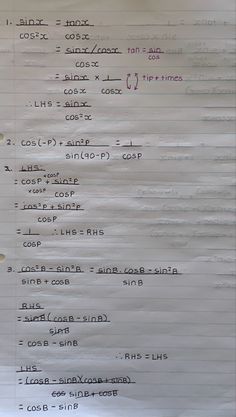 1. sinx/cos²x = tanx/cosx
= sinx/cosx / cosx tan = sin/cos
= sinx/cosx × 1/cosx tip + times
∴ LHS = sinx/cos²x
2. cos(-P) + sin²P/sin(90-P) = 1/cosP
2. LHS
= cosP ×cosP/×cosP + sin²P/cosP
= cos²P + sin²P / cosP
= 1/cosP ∴ LHS = RHS
3. cos²B - sin²B / sinB + cosB = sinB.cosB - sin²B / sinB
RHS
= sinB(cosB - sinB) / sinB
= cosB - sinB
∴ RHS = LHS
LHS
= (cosB - sinB)(cosB + sinB) / sinB + cosB
= cosB - sinB